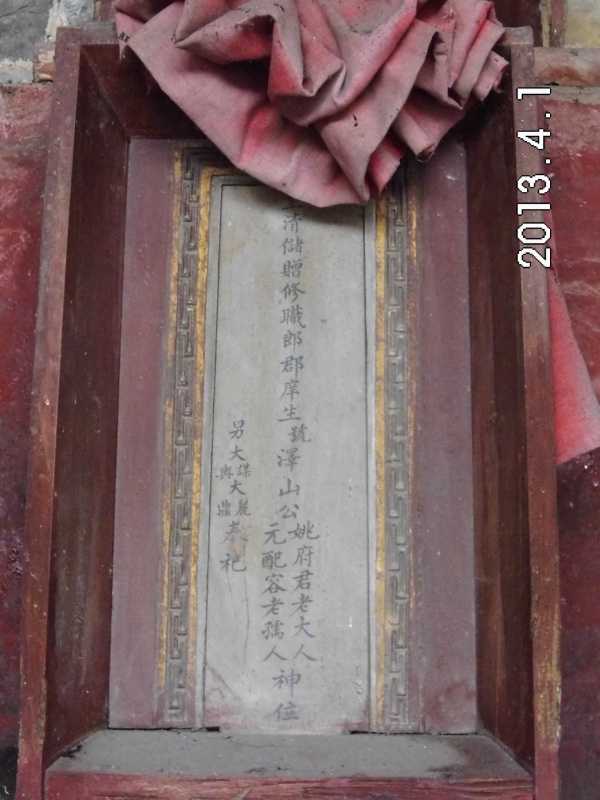 清儲贈修職郎郡庠生號澤山公
姚府君老大人
元配容老孺人
神位
男大
謀
與
大
鼎
奉祀
2013.4.1